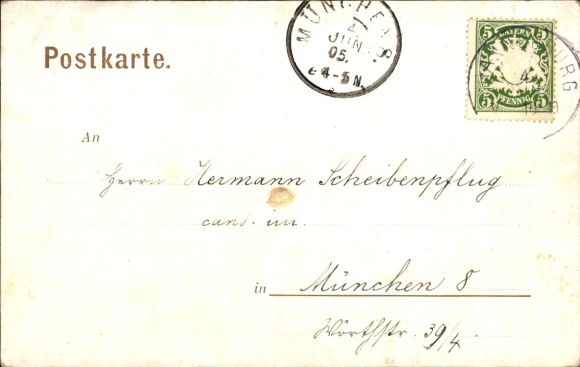 Postkarte.
MÜNCHEN 8.
4
JUN
05.
4-5 N.
5 BAYERN 5
5 PFENNIG 5
BURG
An
Herrn Hermann Scheibenpflug
cand. iur.
in München 8
Wörthstr. 39/4